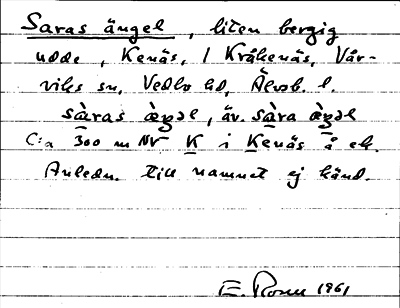 Saras ängel, liten bergig
udde, Kenäs, 1 Kråkenäs, Vår-
viks sn, Vedbo hd, Älvsb. l.
sàras ὰŋəl, äv. sàra ὰŋəl
C:a 300 m NV K i Kenäs å ek.
Anledn. till namnet ej känd.
E. Rosn 1961